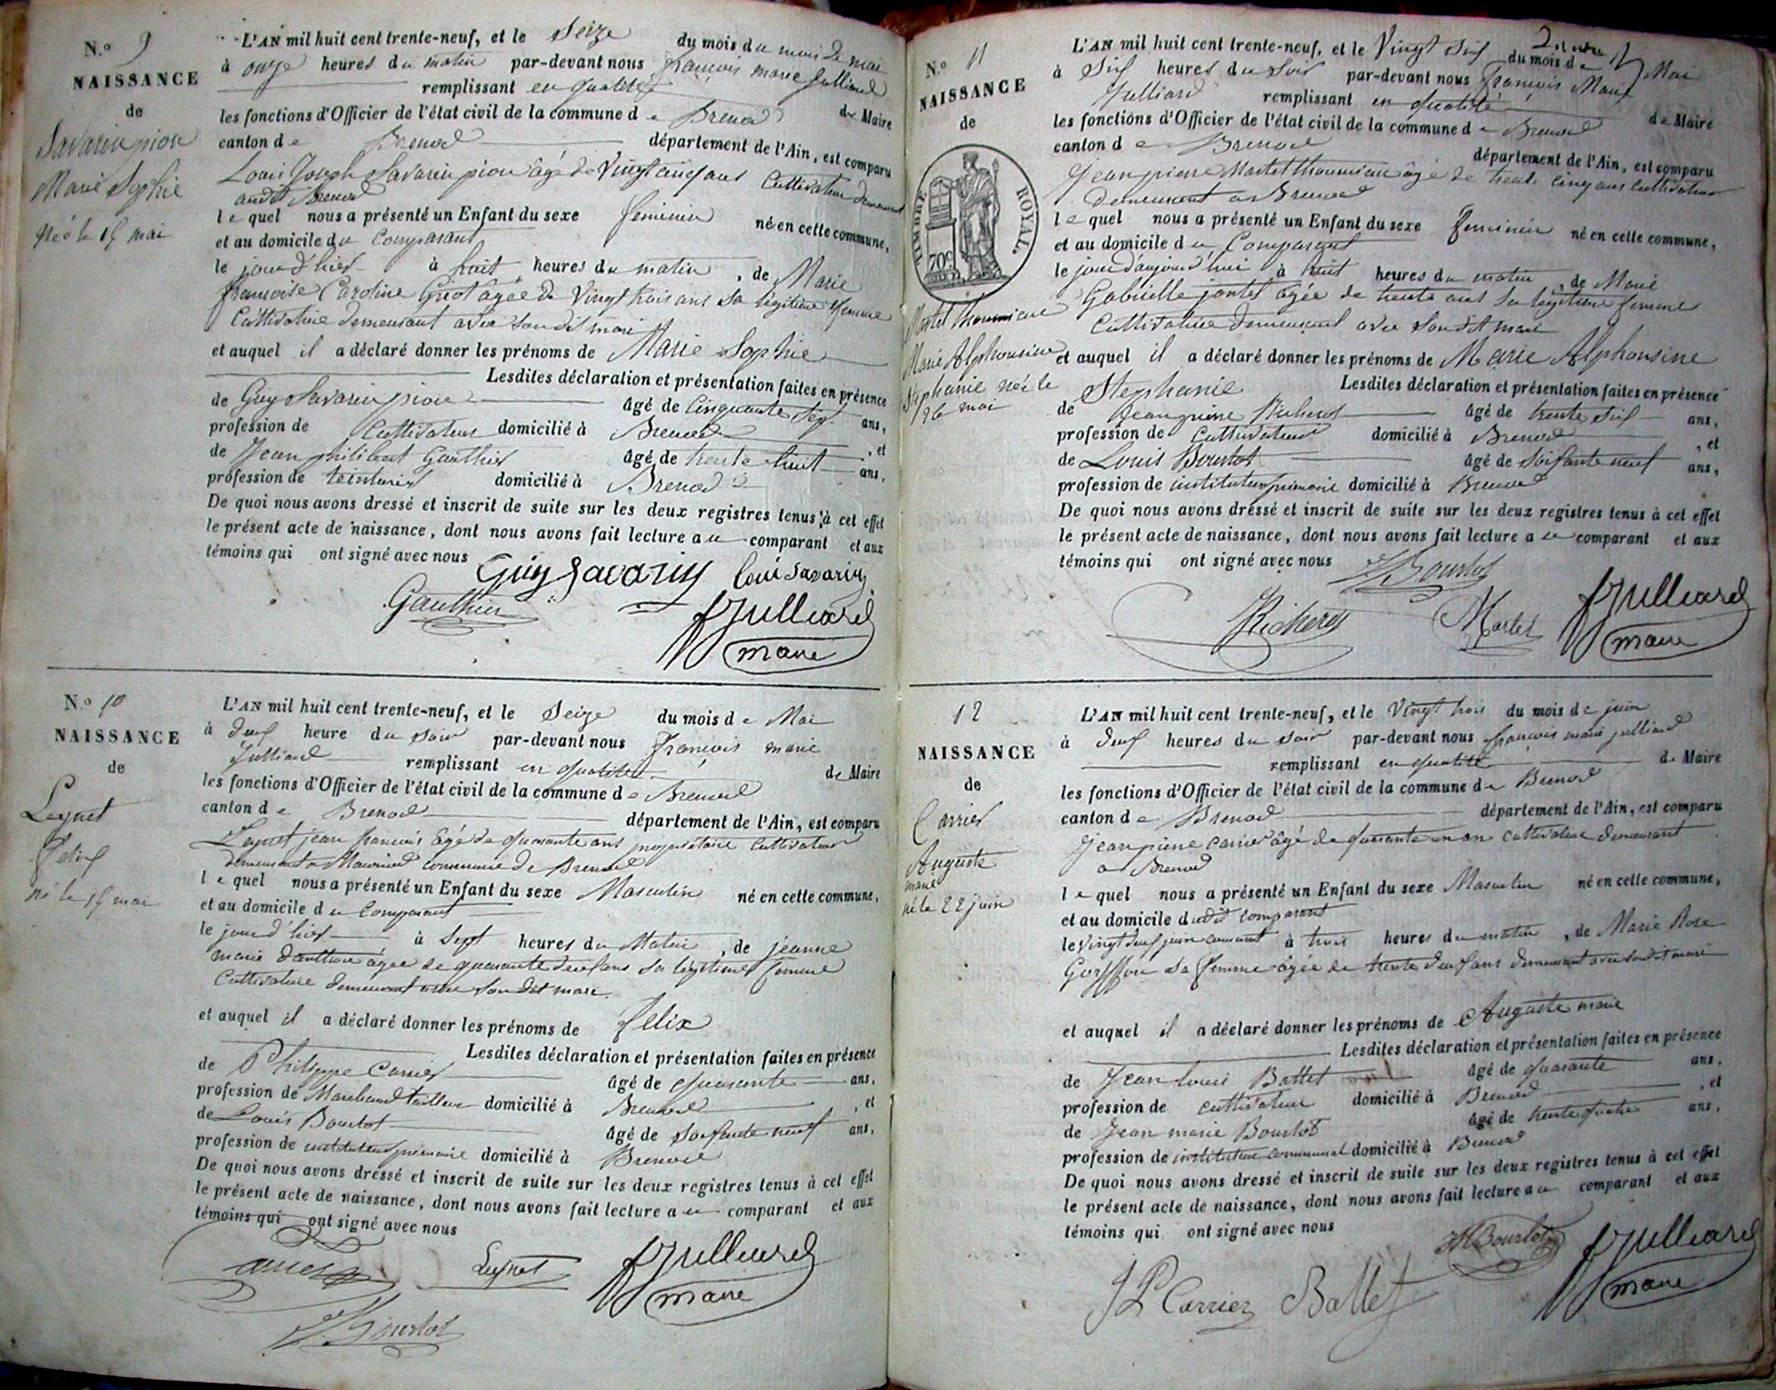 N.o 9
NAISSANCE
de
Savarin pion
Marie Sophie
née le 15 mai
L'AN mil huit cent trente-neuf, et le Seize du mois du mois de mai
à onze heures du matin par-devant nous françois marie Julliard
remplissant en qualité de Maire
les fonctions d'Officier de l'état civil de la commune de Brenod
canton de Brenod département de l'Ain, est comparu
Louis Joseph Savarin pion âgé de Vingt cinq ans Cultivateur demeurant
audit Brenod
lequel nous a présenté un Enfant du sexe feminin né en cette commune,
et au domicile du Comparant
le jour d'hier à huit heures du matin, de Marie
françoise Caroline âgée de Vingt trois ans Sa légitime femme
Cultivatrice demeurant avec Son dit mari
et auquel il a déclaré donner les prénoms de Marie Sophie
Lesdites déclaration et présentation faites en présence
de Guy Savarin pion âgé de Cinquante Sept ans,
profession de Cultivateur domicilié à Brenod, et
de Jean philibert Gauthier âgé de trente huit ans,
profession de teinturier domicilié à Brenod
De quoi nous avons dressé et inscrit de suite sur les deux registres tenus à cet effet
le présent acte de naissance, dont nous avons fait lecture au comparant et aux
témoins qui ont signé avec nous
Guy Savarin Loui Savarin
Gauthier
fJulliard
maire
N.o 10
NAISSANCE
de
Leynet
Felix
né le 15 mai
L'AN mil huit cent trente-neuf, et le Seize du mois de Mai
à deux heure du soir par-devant nous françois marie
Julliard remplissant en qualité de Maire
les fonctions d'Officier de l'état civil de la commune de Brenod
canton de Brenod département de l'Ain, est comparu
Leynet jean françois âgé de quarante ans propriétaire Cultivateur
demeurant à commune de Brenod
lequel nous a présenté un Enfant du sexe Masculin né en cette commune,
et au domicile du Comparant
le jour d'hier à Sept heures du Matin, de jeanne
marie âgée de quarante deux ans Sa légitime femme
Cultivatrice demeurant avec Son dit mari
et auquel il a déclaré donner les prénoms de felix
Lesdites déclaration et présentation faites en présence
de Philippe Carrier âgé de quarante ans,
profession de Marchand tailleur domicilié à Brenod, et
de Louis Bourlot âgé de Soixante neuf ans,
profession de instituteur primaire domicilié à Brenod
De quoi nous avons dressé et inscrit de suite sur les deux registres tenus à cet effet
le présent acte de naissance, dont nous avons fait lecture au comparant et aux
témoins qui ont signé avec nous
Leynet
fJulliard
maire
Bourlot
N.o 11
NAISSANCE
de
TIMBRE ROYAL
70c
Martel thoumian
Marie Alphonsine
Stéphanie née le
26 mai
L'AN mil huit cent trente-neuf, et le Vingt Six du mois de Mai
à Six heures du Soir par-devant nous françois Marie
Julliard remplissant en qualité de Maire
les fonctions d'Officier de l'état civil de la commune de Brenod
canton de Brenod département de l'Ain, est comparu
Jean pierre Martel thoumian âgé de trente cinq ans cultivateur
demeurant à Brenod
lequel nous a présenté un Enfant du sexe feminin né en cette commune,
et au domicile du Comparant
le jour d'aujourd'hui à huit heures du matin, de Marie
Gabrielle jantet âgée de trente ans Sa légitime femme
Cultivatrice demeurant avec Son dit mari
et auquel il a déclaré donner les prénoms de Marie Alphonsine
Stéphanie Lesdites déclaration et présentation faites en présence
de Jean pierre Richerot âgé de trente Six ans,
profession de Cultivateur domicilié à Brenod, et
de Louis Bourlot âgé de Soixante neuf ans,
profession de instituteur primaire domicilié à Brenod
De quoi nous avons dressé et inscrit de suite sur les deux registres tenus à cet effet
le présent acte de naissance, dont nous avons fait lecture au comparant et aux
témoins qui ont signé avec nous
Bourlot
Martel
fJulliard
maire
12
NAISSANCE
de
Carrier
Auguste
marie
né le 22 juin
L'AN mil huit cent trente-neuf, et le Vingt trois du mois de juin
à deux heures du soir par-devant nous françois marie julliard
remplissant en qualité de Maire
les fonctions d'Officier de l'état civil de la commune de Brenod
canton de Brenod département de l'Ain, est comparu
Jean pierre carrier âgé de quarante un an cultivateur demeurant
à Brenod
lequel nous a présenté un Enfant du sexe Masculin né en cette commune,
et au domicile dudit comparant
le Vingt deux juin courant à trois heures du matin, de Marie Rose
Sa femme âgée de trente deux ans demeurant avec Son dit mari
et auquel il a déclaré donner les prénoms de Auguste marie
Lesdites déclaration et présentation faites en présence
de Jean Louis Ballet âgé de quarante ans,
profession de cultivateur domicilié à Brenod, et
de Jean marie Bourlot âgé de trente quatre ans,
profession de instituteur communal domicilié à Brenod
De quoi nous avons dressé et inscrit de suite sur les deux registres tenus à cet effet
le présent acte de naissance, dont nous avons fait lecture au comparant et aux
témoins qui ont signé avec nous
JMBourlot
fJulliard
maire
JP Carrier Ballet